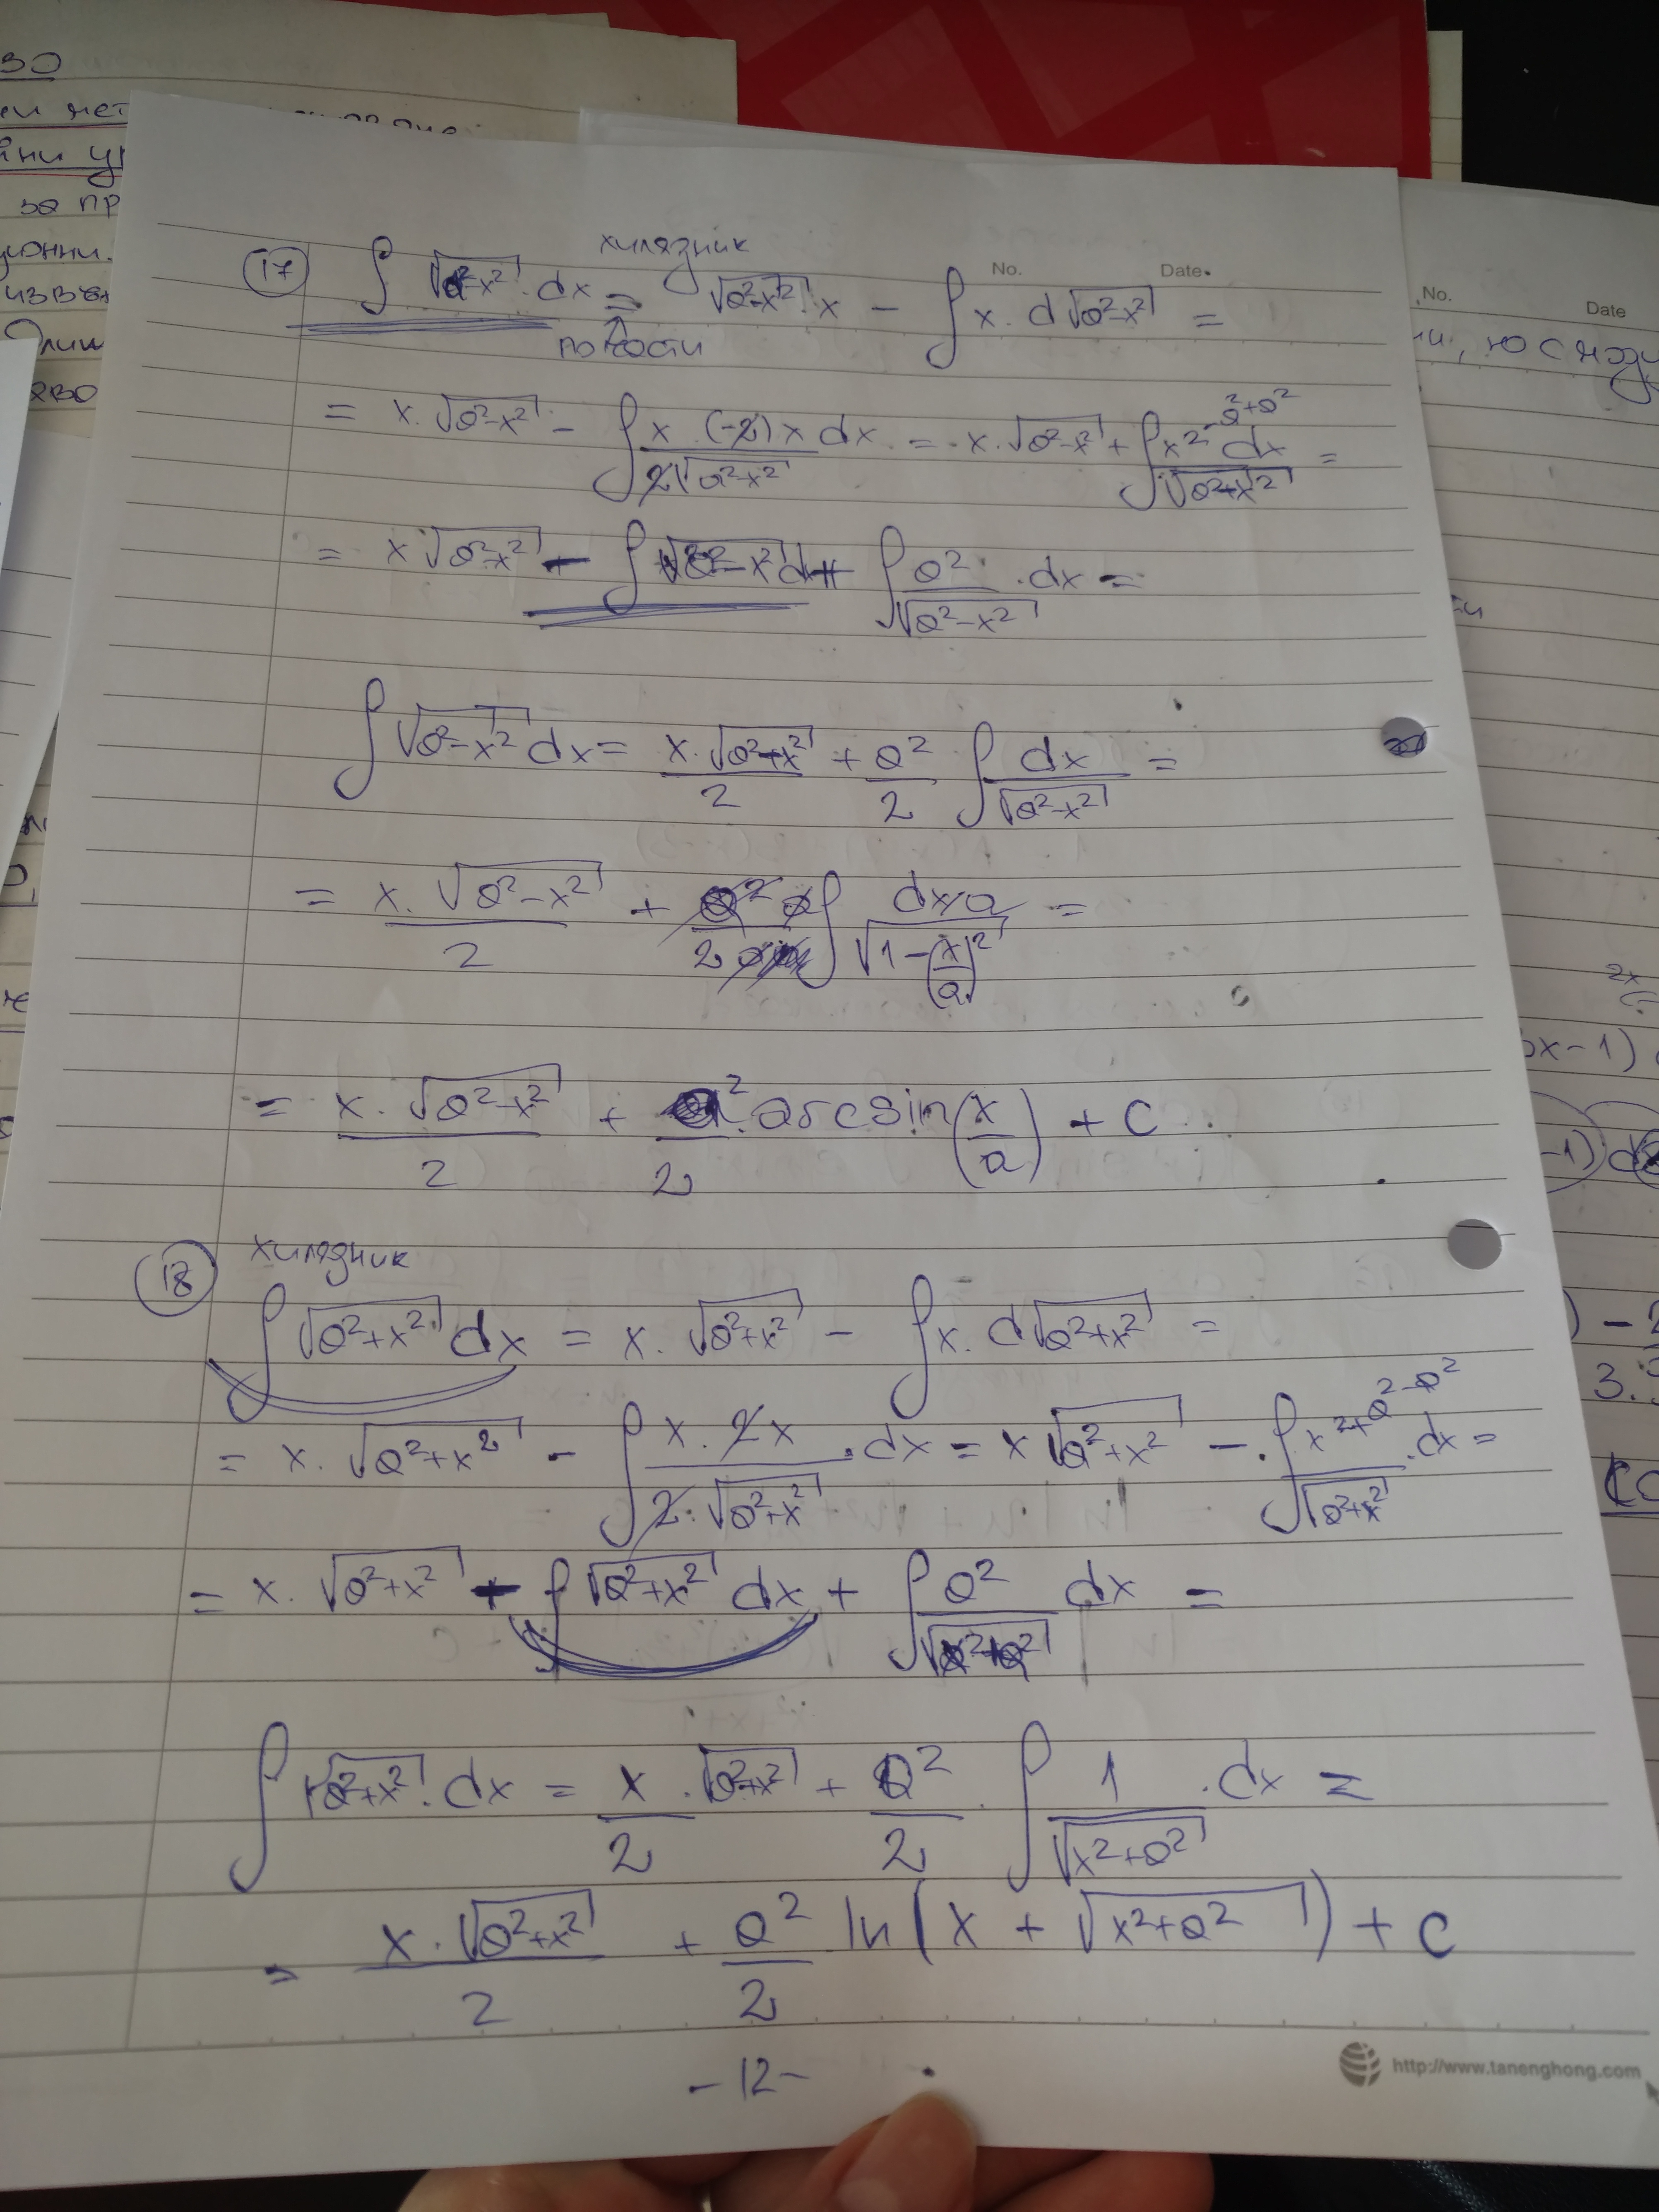 ВО
за пр
No. Date.
No. Date
хилядник
(17) ∫ √(a²-x²) . dx = √(a²-x²) . x - ∫ x . d√(a²-x²) =
по части
= x . √(a²-x²) - ∫ x . (-2)x dx / 2√(a²-x²) = x . √(a²-x²) + ∫ x² - a² + a² dx / √(a²-x²) =
= x √(a²-x²) - ∫ √(a²-x²) dx + ∫ a² / √(a²-x²) . dx =
∫ √(a²-x²) dx = x . √(a²-x²) / 2 + a² / 2 ∫ dx / √(a²-x²) =
= x . √(a²-x²) / 2 + a² a / 2 a ∫ dx/a / √(1-(x/a)²) =
= x . √(a²-x²) / 2 + a² / 2 . arcsin(x/a) + C
хилядник
(18) ∫ √(a²+x²) dx = x . √(a²+x²) - ∫ x . d√(a²+x²) =
= x . √(a²+x²) - ∫ x . 2x / 2 . √(a²+x²) . dx = x √(a²+x²) - ∫ x² + a² - a² / √(a²+x²) . dx =
= x . √(a²+x²) - ∫ √(a²+x²) dx + ∫ a² / √(x²+a²) dx =
∫ √(a²+x²) . dx = x / 2 . √(a²+x²) + a² / 2 . ∫ 1 / √(x²+a²) . dx =
= x . √(a²+x²) / 2 + a² / 2 ln(x + √(x²+a²)) + C
-12-
http://www.tanenghong.com